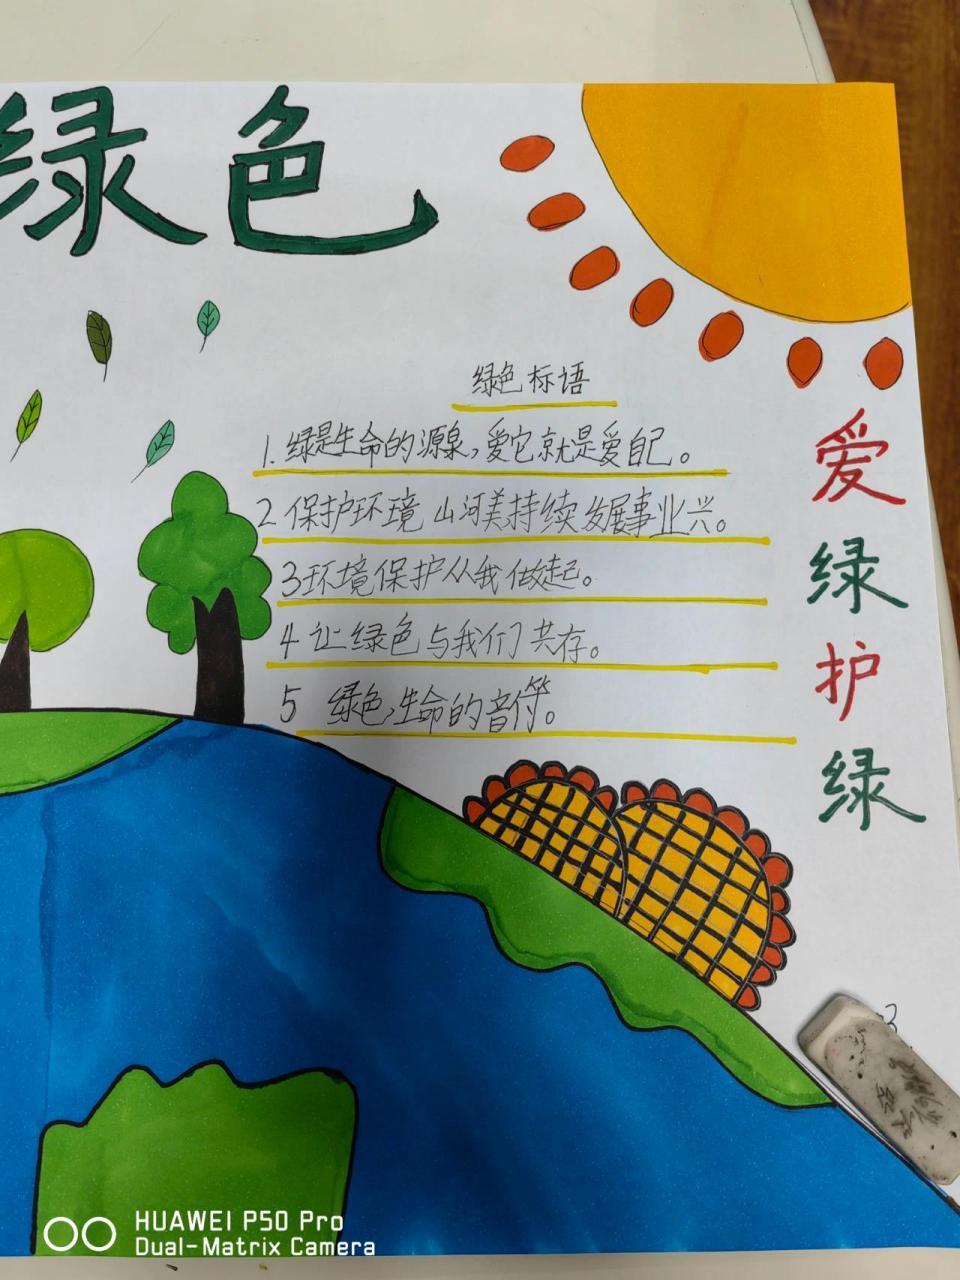 绿色
绿色标语
1. 绿是生命的源泉,爱它就是爱自己。
2 保护环境 山河美持续发展事业兴。
3环境保护从我做起。
4 让绿色与我们共存。
5 绿色,生命的音符。
爱
绿
护
绿
HUAWEI P50 Pro
Dual-Matrix Camera